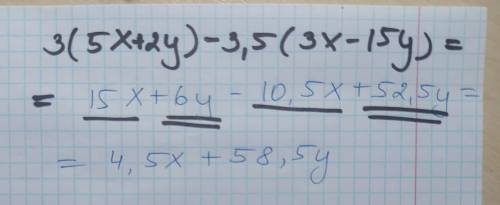 3(5x+2y)-3,5(3x-15y)=
= 15x+6y-10,5x+52,5y=
= 4,5x+58,5y